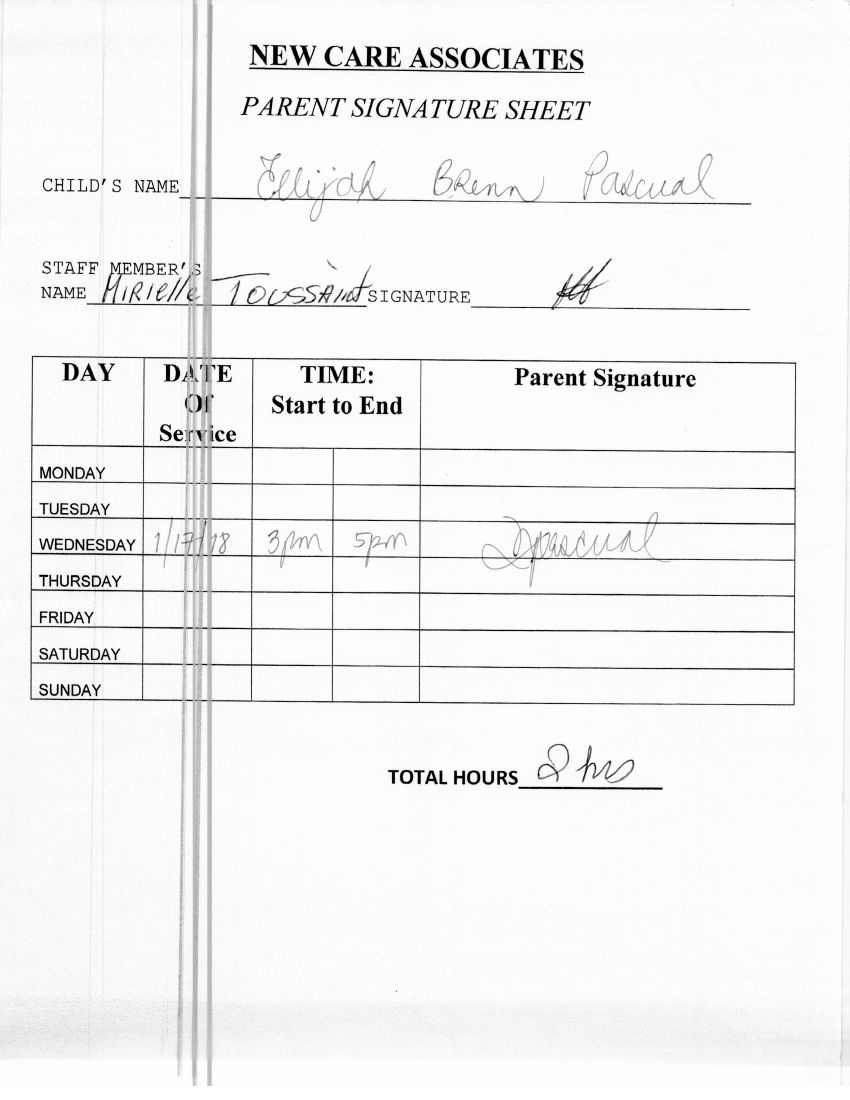 NEW CARE ASSOCIATES
PARENT SIGNATURE SHEET
CHILD'S NAME Ellijah Brenn Pascual
STAFF MEMBER'S
NAME Mirielle Toussaint SIGNATURE
DAY DATE Of Service TIME: Start to End Parent Signature
MONDAY
TUESDAY
WEDNESDAY 1/17/18 3pm 5pm Dpascual
THURSDAY
FRIDAY
SATURDAY
SUNDAY
TOTAL HOURS 2 hrs